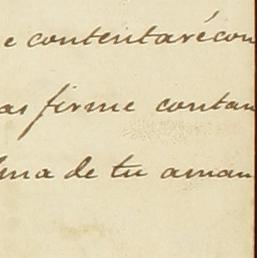 e contentaré con
as firme contan
lma de tu aman